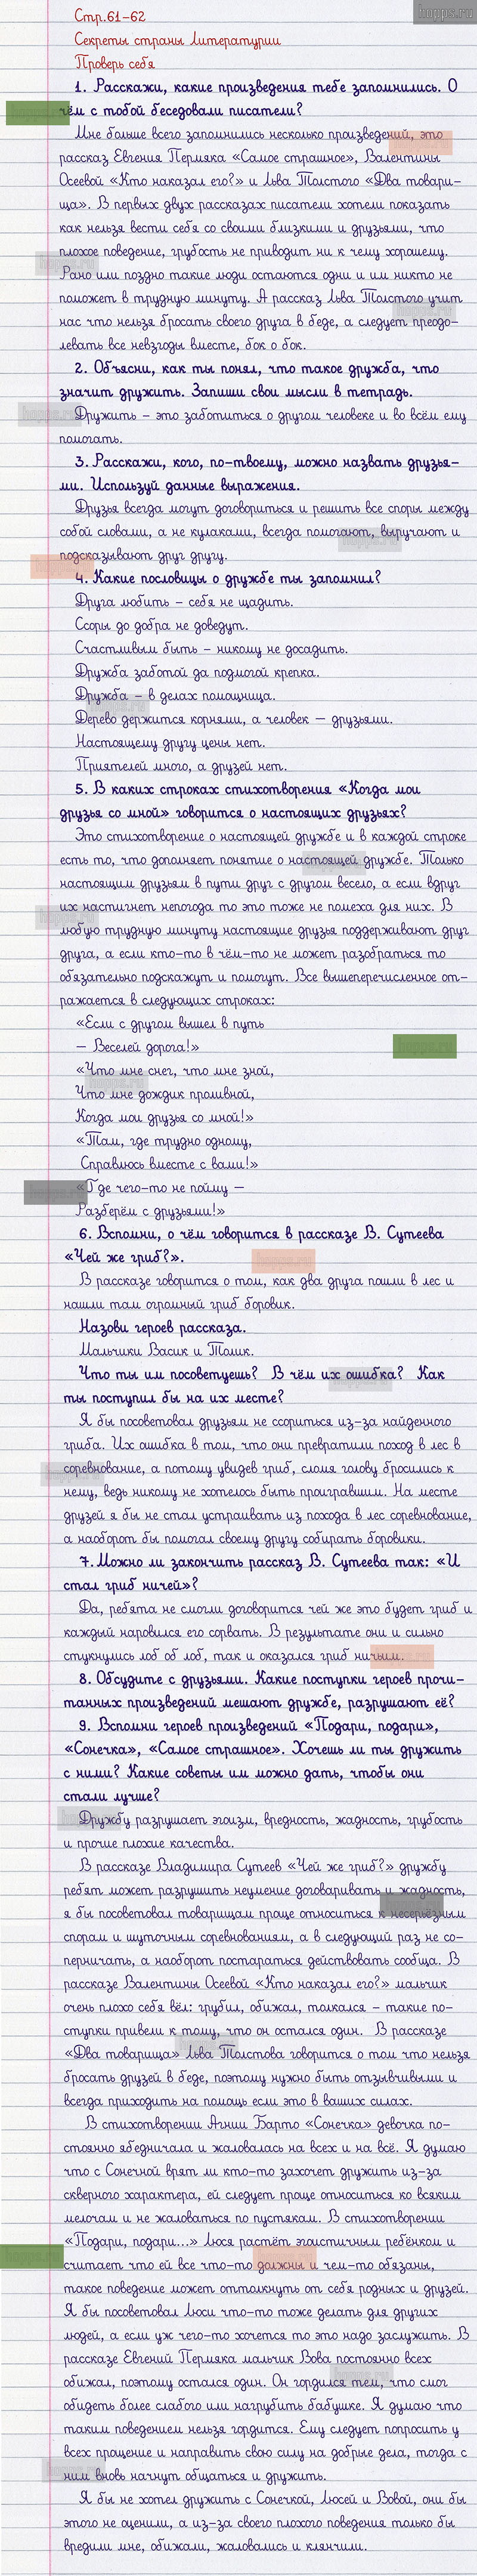 Стр.61-62
Секреты страны Литературии
Проверь себя
1. Расскажи, какие произведения тебе запомнились. О
чём с тобой беседовали писатели?
Мне больше всего запомнились несколько произведений, это
рассказ Евгения Пермяка «Самое страшное», Валентины
Осеевой «Кто наказал его?» и Льва Толстого «Два товари-
ща». В первых двух рассказах писатели хотели показать
как нельзя вести себя со своими близкими и друзьями, что
плохое поведение, грубость не приводит ни к чему хорошему.
Рано или поздно такие люди остаются одни и им никто не
поможет в трудную минуту. А рассказ Льва Толстого учит
нас что нельзя бросать своего друга в беде, а следует преодо-
левать все невзгоды вместе, бок о бок.
2. Объясни, как ты понял, что такое дружба, что
значит дружить. Запиши свои мысли в тетрадь.
Дружить – это заботиться о другом человеке и во всём ему
помогать.
3. Расскажи, кого, по-твоему, можно назвать друзья-
ми. Используй данные выражения.
Друзья всегда могут договориться и решить все споры между
собой словами, а не кулаками, всегда помогают, выручают и
подсказывают друг другу.
4. Какие пословицы о дружбе ты запомнил?
Друга любить – себя не щадить.
Ссоры до добра не доведут.
Счастливым быть – никому не досадить.
Дружба заботой да подмогой крепка.
Дружба – в делах помощница.
Дерево держится корнями, а человек — друзьями.
Настоящему другу цены нет.
Приятелей много, а друзей нет.
5. В каких строках стихотворения «Когда мои
друзья со мной» говорится о настоящих друзьях?
Это стихотворение о настоящей дружбе и в каждой строке
есть то, что дополняет понятие о настоящей дружбе. Только
настоящим друзьям в пути друг с другом весело, а если вдруг
их настигнет непогода то это тоже не помеха для них. В
любую трудную минуту настоящие друзья поддерживают друг
друга, а если кто-то в чём-то не может разобраться то
обязательно подскажут и помогут. Все вышеперечисленное от-
ражается в следующих строках:
«Если с другом вышел в путь
– Веселей дорога!»
«Что мне снег, что мне зной,
Что мне дождик проливной,
Когда мои друзья со мной!»
«Там, где трудно одному,
Справлюсь вместе с вами!»
«Где чего-то не пойму –
Разберём с друзьями!»
6. Вспомни, о чём говорится в рассказе В. Сутеева
«Чей же гриб?».
В рассказе говорится о том, как два друга пошли в лес и
нашли там огромный гриб боровик.
Назови героев рассказа.
Мальчики Васик и Толик.
Что ты им посоветуешь? В чём их ошибка? Как
ты поступил бы на их месте?
Я бы посоветовал друзьям не ссориться из-за найденного
гриба. Их ошибка в том, что они превратили поход в лес в
соревнование, а потому увидев гриб, сломя голову бросились к
нему, ведь никому не хотелось быть проигравшим. На месте
друзей я бы не стал устраивать из похода в лес соревнование,
а наоборот бы помогал своему другу собирать боровики.
7. Можно ли закончить рассказ В. Сутеева так: «И
стал гриб ничей»?
Да, ребята не смогли договорится чей же это будет гриб и
каждый норовился его сорвать. В результате они и сильно
стукнушись лоб об лоб, так и оказался гриб ничьим.
8. Обсудите с друзьями. Какие поступки героев прочи-
танных произведений мешают дружбе, разрушают её?
9. Вспомни героев произведений «Подари, подари»,
«Сонечка», «Самое страшное». Хочешь ли ты дружить
с ними? Какие советы им можно дать, чтобы они
стали лучше?
Дружбу разрушает эгоизм, вредность, жадность, грубость
и прочие плохие качества.
В рассказе Владимира Сутеев «Чей же гриб?» дружбу
ребят может разрушить неумение договаривать и жадность,
я бы посоветовал товарищам проще относиться к несерьёзным
спорам и шуточным соревнованиям, а в следующий раз не со-
перничать, а наоборот постараться действовать сообща. В
рассказе Валентины Осеевой «Кто наказал его?» мальчик
очень плохо себя вёл: грубил, обижал, толкался – такие по-
ступки привели к тому, что он остался один. В рассказе
«Два товарища» Льва Толстова говорится о том что нельзя
бросать друзей в беде, поэтому нужно быть отзывчивыми и
всегда приходить на помощь если это в ваших силах.
В стихотворении Агнии Барто «Сонечка» девочка по-
стоянно ябедничала и жаловалась на всех и на всё. Я думаю
что с Сонечной врят ли кто-то захочет дружить из-за
скверного характера, ей следует проще относиться ко всяким
мелочам и не жаловаться по пустякам. В стихотворении
«Подари, подари...» Люся растёт эгоистичным ребёнком и
считает что ей все что-то должны и чем-то обязаны,
такое поведение может оттолкнуть от себя родных и друзей.
Я бы посоветовал Люси что-то тоже делать для других
людей, а если уж чего-то хочется то это надо заслужить. В
рассказе Евгений Пермяка мальчик Вова постоянно всех
обижал, поэтому остался один. Он гордился тем, что смог
обидеть более слабого или нагрубить бабушке. Я думаю что
таким поведением нельзя гордится. Ему следует попросить у
всех прощение и направить свою силу на добрые дела, тогда с
ним вновь начнут общаться и дружить.
Я бы не хотел дружить с Сонечкой, Люсей и Вовой, они бы
этого не оценили, а из-за своего плохого поведения только бы
вредили мне, обижали, жаловались и клянчили.